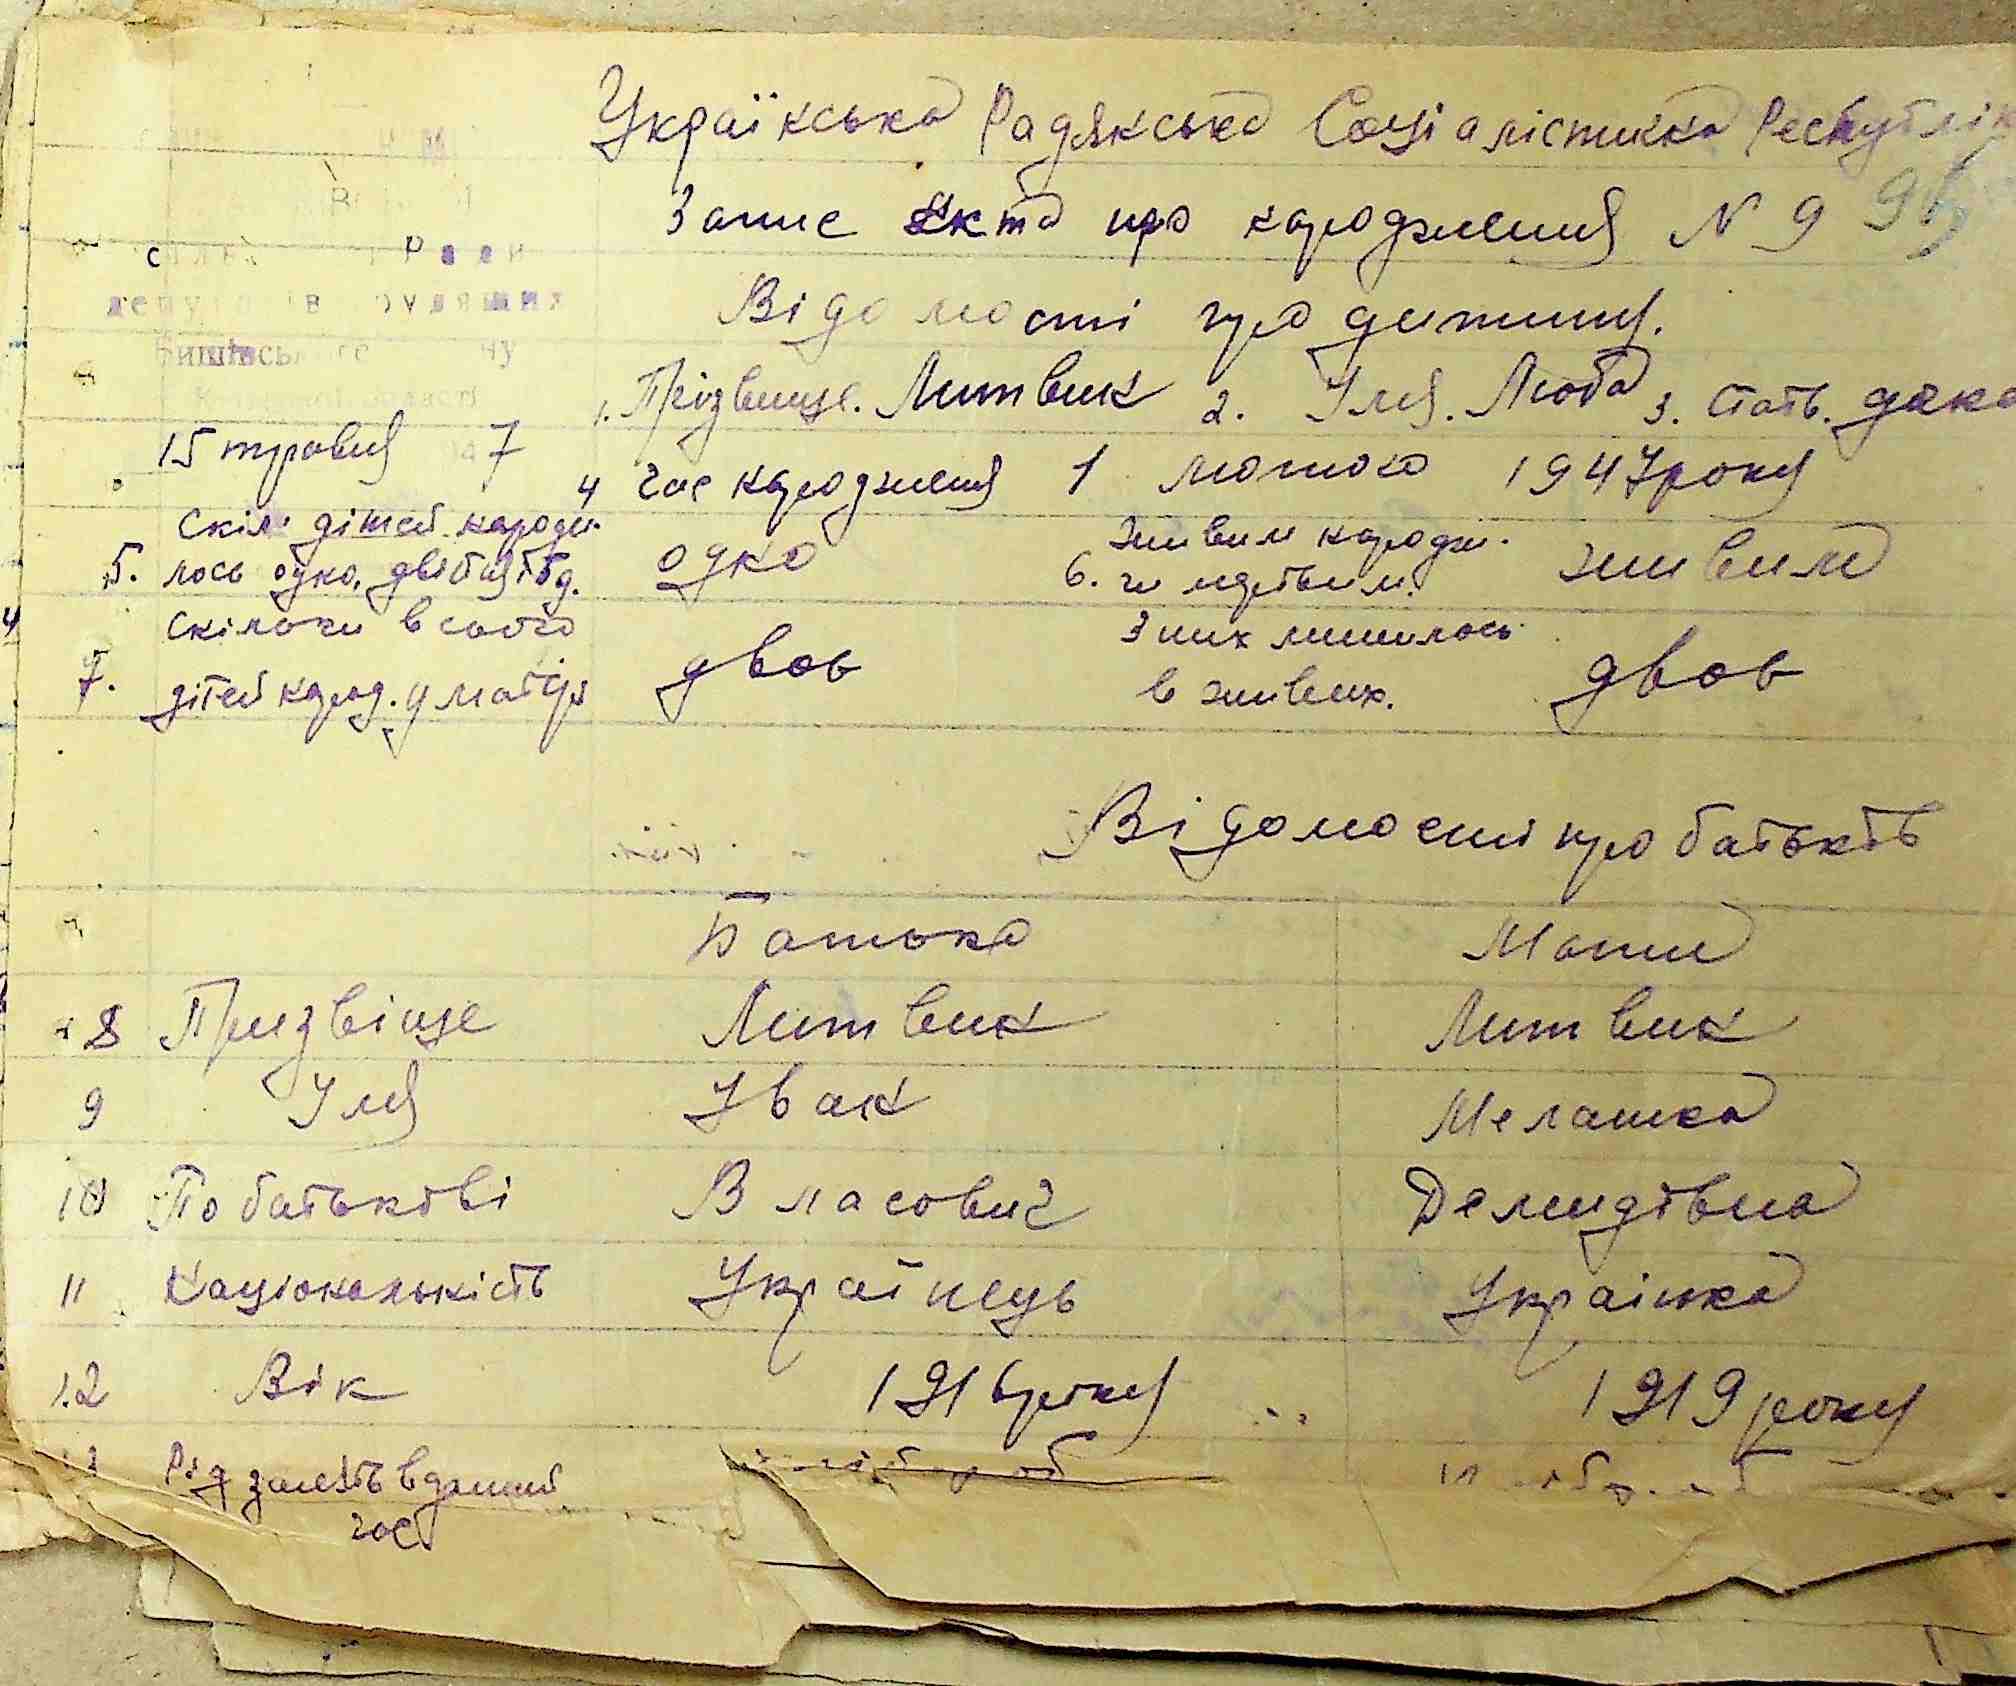 Українська Радянська Соціалістична Республік
Запис акта про народження N 9
Відомості про дитину.
1. Прізвище. Литвин 2. Імя. Люба 3. Стать. дяка
15 травня 7
4 час народження 1 лютого 1947 року
5. Скіл. дітей народи-
лось одно, двійня і т.д. одно
6. живим народж.
чи мертвим. живим
7. Скільки всього
дітей народ. у матері двоє
З них лишилось
в живих. двоє
Відомості про батьків
Батько Мати
8 Призвіще Литвин Литвин
9 Імя Іван Мелашка
10 По батькові Власович Демидівна
11 Національність Українець Українка
12 Вік 1916 року 1919 року
Рід занять в даний
час